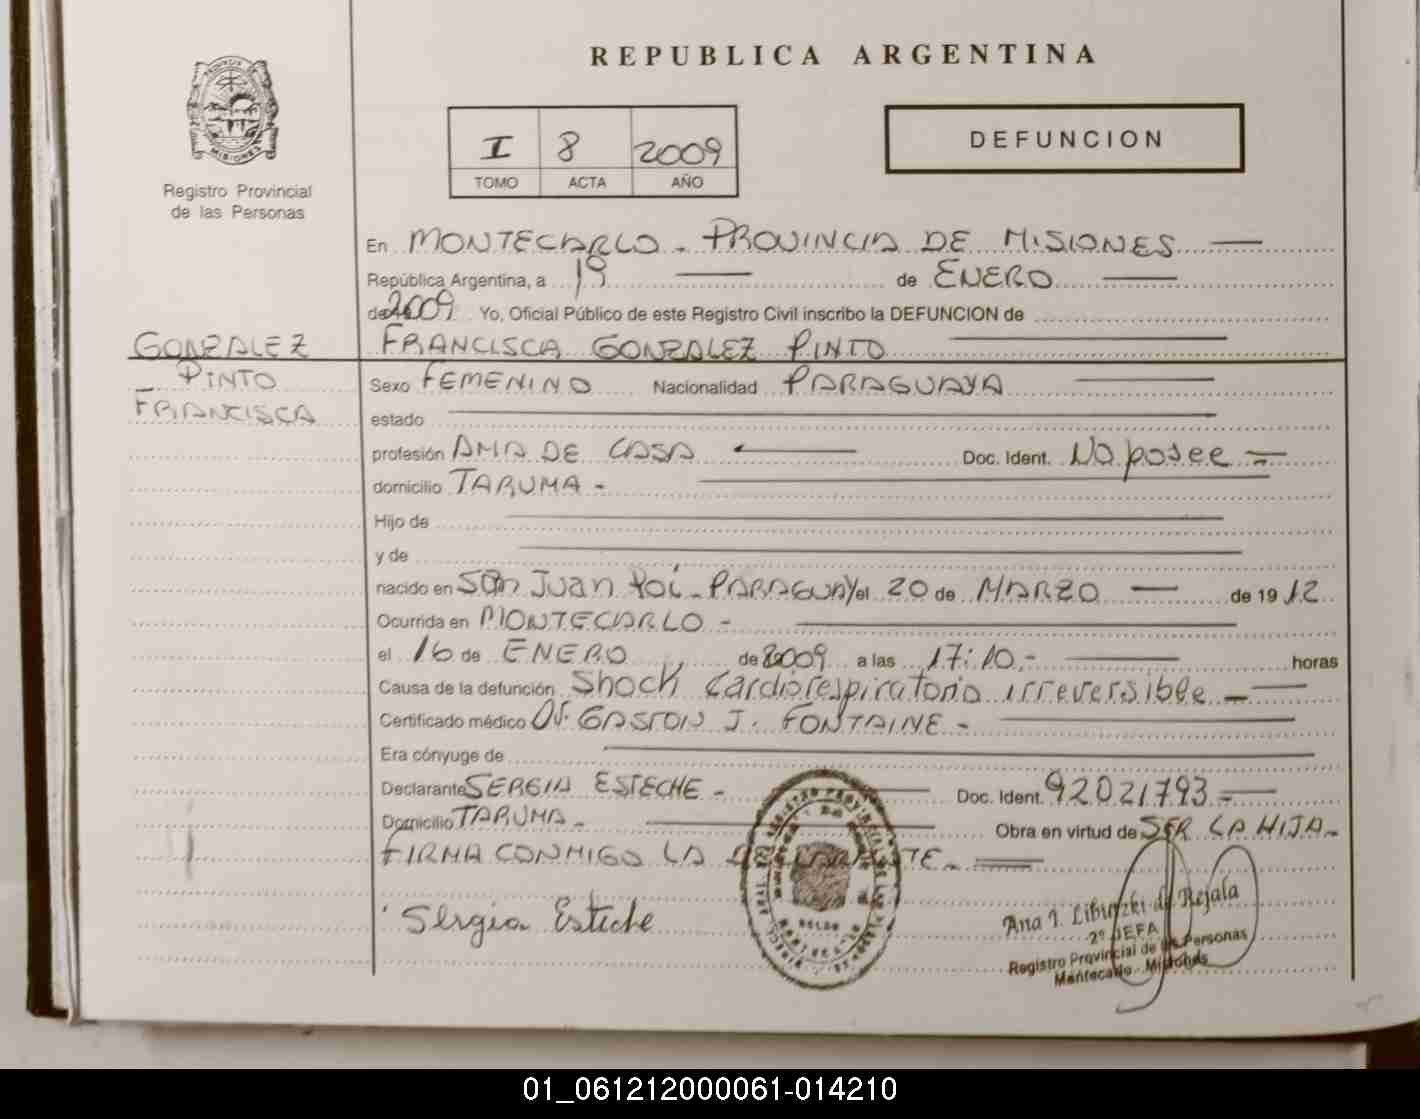 REPUBLICA ARGENTINA
I 8 2009
TOMO ACTA AÑO
DEFUNCION
MISIONES
Registro Provincial
de las Personas
En MONTECARLO - PROVINCIA DE MISIONES
República Argentina, a 19 de ENERO
de 2009 Yo, Oficial Público de este Registro Civil inscribo la DEFUNCION de
GONZALEZ FRANCISCA GONZALEZ PINTO
PINTO Sexo FEMENINO Nacionalidad PARAGUAYA
FRANCISCA estado
profesión AMA DE CASA Doc. Ident. No posee -
domicilio TARUMA -
Hijo de
y de
nacido en San Juan Poi - PARAGUAY el 20 de MARZO de 1912
Ocurrida en MONTECARLO -
el 16 de ENERO de 2009 a las 17:10.- horas
Causa de la defunción Shock Cardiorespiratorio irreversible -
Certificado médico Dr. GASTON J. FONTAINE -
Era cónyuge de
Declarante SERGIA ESTECHE - Doc. Ident. 92021793 -
Domicilio TARUMA - Obra en virtud de SER LA HIJA -
FIRMA CONMIGO LA DECLARANTE -
Sergia Esteche
Ana I. de Rejala
2º JEFA
Registro Provincial de las Personas
Montecarlo - Misiones
01_061212000061-014210